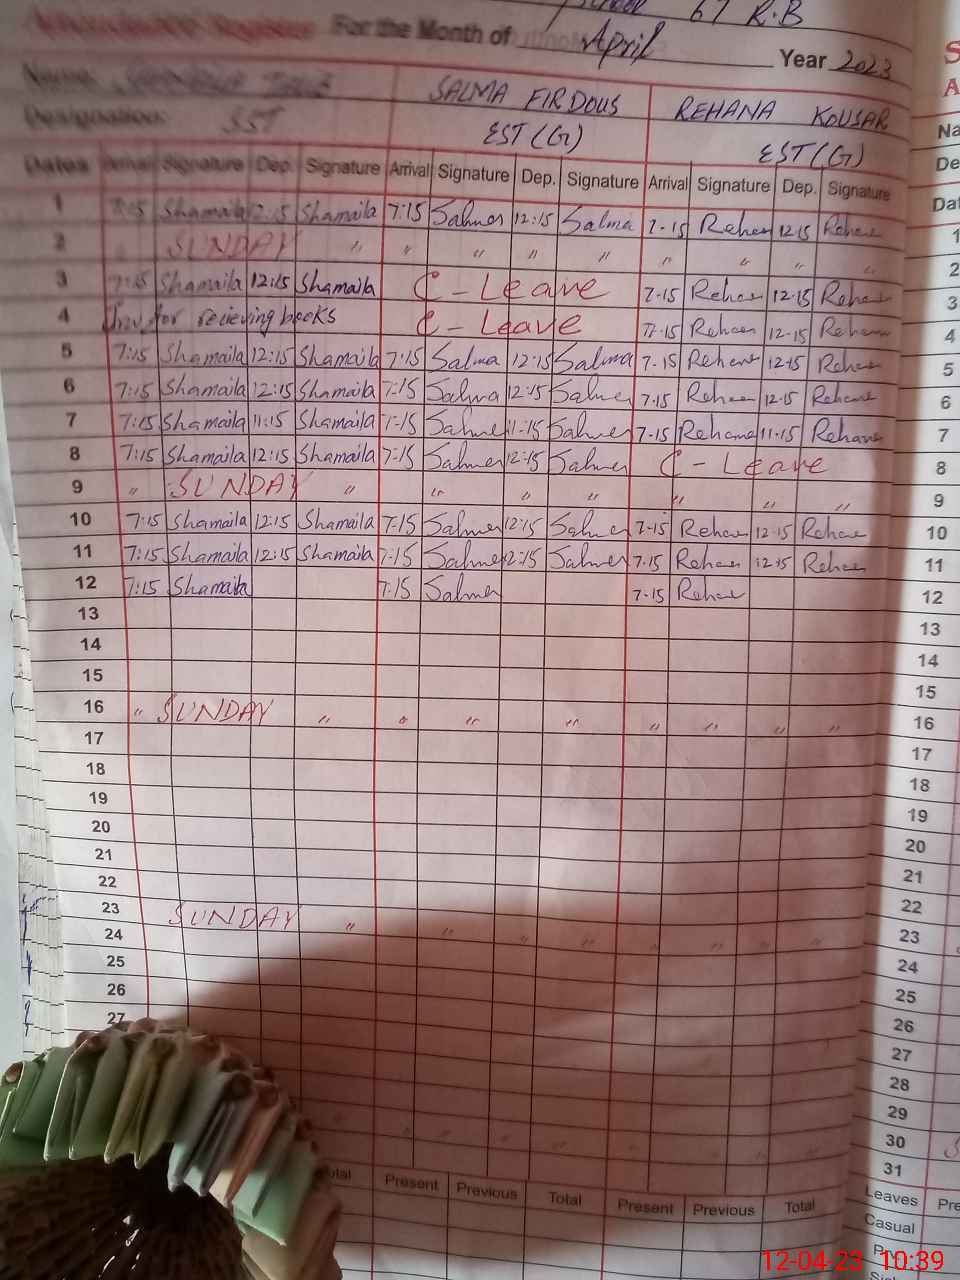 School 67 R.B
Attendance Register For the Month of April Year 2023
Name SALMA FIRDOUS REHANA KOUSAR
Designation: SST EST(G) EST(G)
Dates Arrival Signature Dep. Signature Arrival Signature Dep. Signature Arrival Signature Dep. Signature
1 7:15 Shamaila 12:15 Shamaila 7:15 Salma 12:15 Salma 7-15 Rehana 12-15 Rehana 1
2 " SUNDAY " " " " " " " " " 2
3 7:15 Shamaila 12:15 Shamaila C-Leave 7-15 Rehana 12-15 Rehana 3
4 for recieving books C-Leave 7-15 Rehana 12-15 Rehana 4
5 7:15 Shamaila 12:15 Shamaila 7:15 Salma 12:15 Salma 7-15 Rehana 12-15 Rehana 5
6 7:15 Shamaila 12:15 Shamaila 7:15 Salma 12:15 Salma 7-15 Rehana 12-15 Rehana 6
7 7:15 Shamaila 11:15 Shamaila 7-15 Salma 11-15 Salma 7-15 Rehana 11-15 Rehana 7
8 7:15 Shamaila 12:15 Shamaila 7-15 Salma 12-15 Salma C-Leave 8
9 " SUNDAY " " " " " " " 9
10 7:15 Shamaila 12:15 Shamaila 7-15 Salma 12-15 Salma 7-15 Rehana 12-15 Rehana 10
11 7:15 Shamaila 12:15 Shamaila 7-15 Salma 12-15 Salma 7-15 Rehana 12-15 Rehana 11
12 7:15 Shamaila 7:15 Salma 7-15 Rehana 12
13 13
14 14
15 15
16 " SUNDAY " " " " " " " " 16
17 17
18 18
19 19
20 20
21 21
22 22
23 SUNDAY " " " " " " " " 23
24 24
25 25
26 26
27 27
28
29
30
31
Total Present Previous Total Present Previous Total Leaves
Casual
12-04-23 10:39